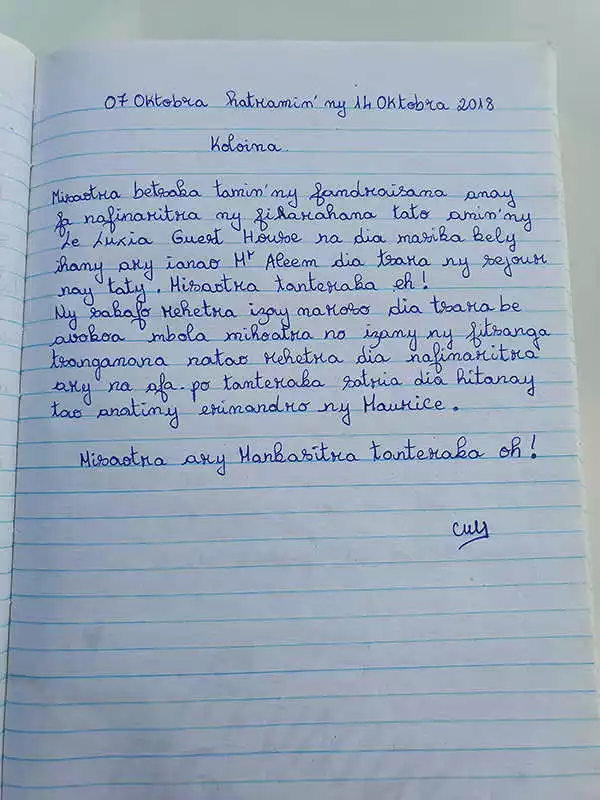 07 Oktobra hatramin' ny 14 Oktobra 2018
Koloina.
Misaotra betsaka tamin'ny fandraisana anay
fa nafinaritra ny fiarahana tato amin'ny
Le Luxia Guest House na dia masika kely
ihany ary ianao Mr Aleem dia tsara ny sejour
nay taty. Misaotra tanteraka eh!
Ny sakafo rehetra izay maroso dia tsara be
avokoa mbola mihoatra no izany ny fitsanga
tsanganana natao rehetra dia nafinaritra
ary na afa-po tanteraka satria dia hitanay
tao anatiny erinandro ny Maurice.
Misaotra ary Mankasitra tanteraka oh!